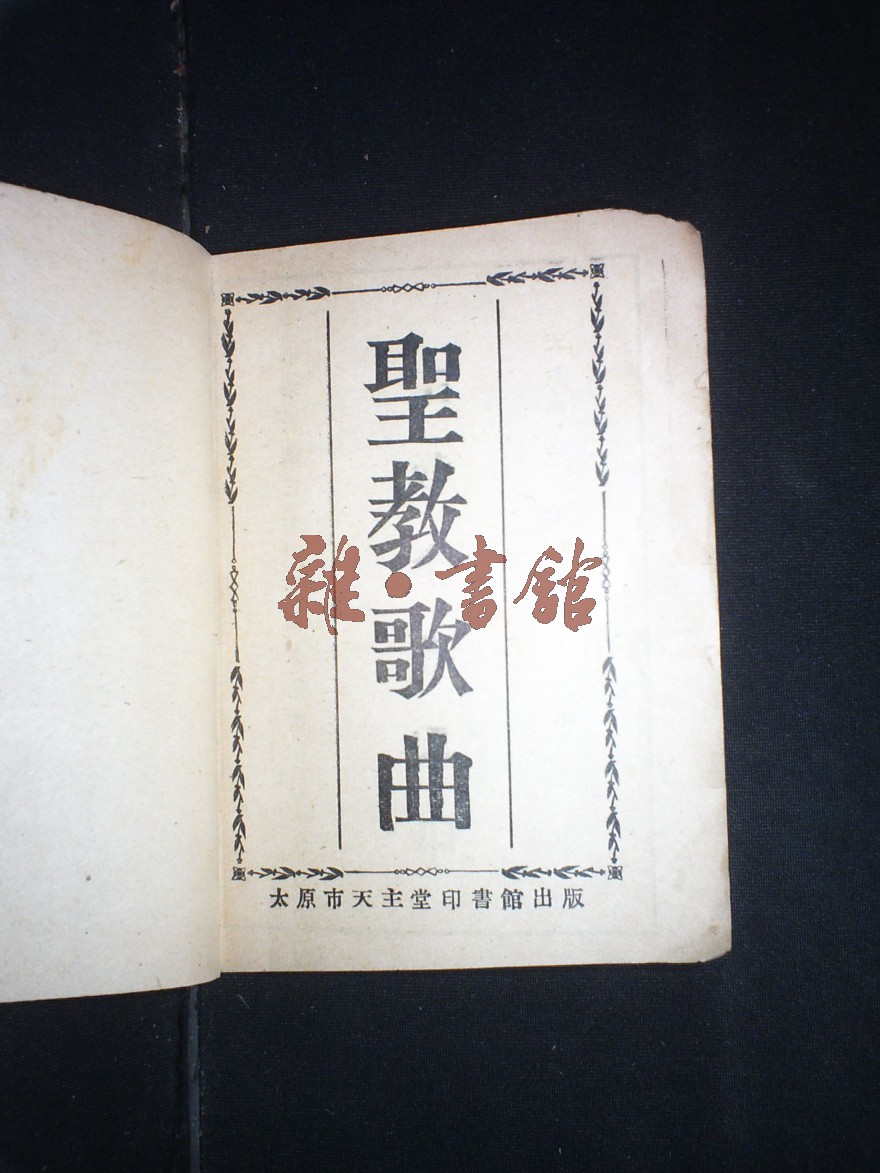 聖教歌曲
雜·書館
太原市天主堂印書館出版